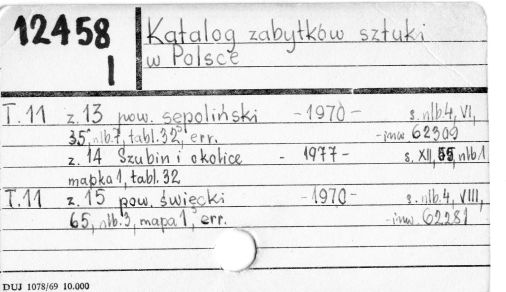 12458
I
Katalog zabytków sztuki
w Polsce
T.11 z. 13 pow. sępoliński - 1970 - s. nlb.4, VI,
35, nlb.7, tabl.32, err. - inw 62309
z. 14 Szubin i okolice - 1977 - s. XII, 55, nlb.1
mapka 1, tabl. 32
T.11 z. 15 pow. święcki - 1970 - s. nlb.4, VIII,
65, nlb.3, mapa 1, err. - inw. 62281
DUJ 1078/69 10.000